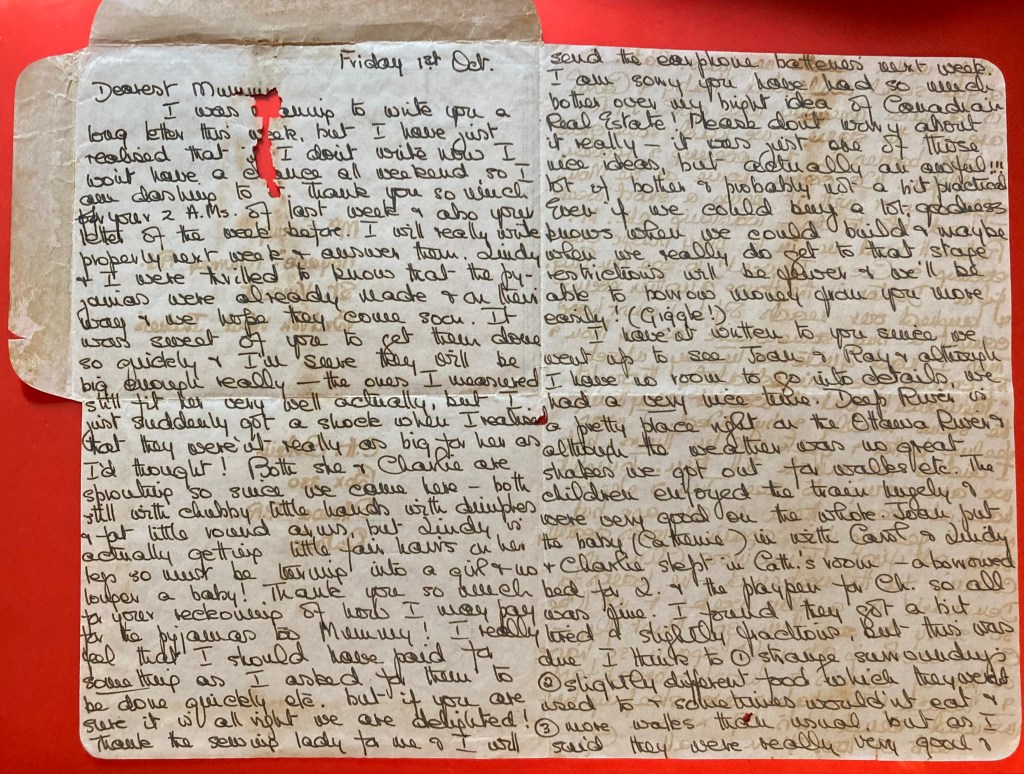 Friday 1st Oct.
Dearest Mummy
I was aming to write you a
long letter this week, but I have just
realised that if I don't write now I
won't have a chance all weekend, so I
am dashing to I Thank you so much
for your 2 A.Ms. of last week & also your
letter of the week before. I will really write
properly next week & answer them. Lindy
& I were thrilled to know that the py-
jamas were already made & on their
way & we hope they come soon. It
was sweat of you to get them done
so quickly & I'm sure they will be
big enough really — the ones I measured
still fit her very well actually, but I
just suddenly got a shock when I realised
that they were'nt really as big for her as
I'd thought! Both she & Charlie are
sprouting so since we came here — both
still with chubby little hands with dimples
& fat little round arms, but Lindy is
actually getting little fair hairs on her
legs so must be turning into a girl & no
longer a baby! Thank you so much
for your reckoning of how I may pay
for the pyjamas too Mummy! I really
feel that I should have paid for
something as I asked for them to
be done quickly etc. but if you are
sure it is all right we are delighted!
Thank the sewing lady for me & I will
send the earphone batteries next week.
I am sorry you have had so much
bother over my bright idea of Canadian
Real Estate! Please dont worry about
it really — it was just one of those
nice ideas, but actually an awful!!!
lot of bother & probably not a bit practical
Even if we could buy a lot, goodness
knows when we could build & maybe
when we really do get to that stage
restrictions will be fewer & we'll be
able to borrow money from you more
easily! (Giggle!)
I have'nt written to you since we
went up to see Joan & Ray & although
I have no room to go into details, we
had a very nice time. Deep River is
a pretty place right on the Ottawa River &
although the weather was no great
shakes we got out for walks etc. The
children enjoyed the train hugely &
were very good on the whole. Joan put
the baby (Catherine) in with Carol & Lindy
& Charlie slept in Cath.'s room — a borrowed
bed for L. & the playpen for Ch. so all
was fine. I found they got a bit
tired & slightly fractious but this was
due I think to ① strange surroundings
② slightly different food which they were'nt
used to & sometimes would'nt eat &
③ more walks than usual, but as I
said they were really very good &